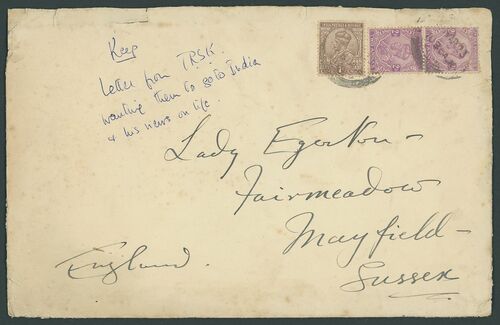 Keep
Letter from TRSK.
wanting them to go to India
& his views on life.
Lady Egerton -
Fairmeadow
Mayfield -
Sussex
England.